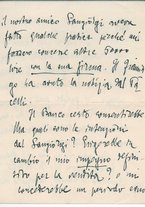 il nostro amico Sangiorgi aveva
fatto qualche pratica perché mi
fossero concesse altre 5000
lire con la sua firma. Ti
ha avuto la notizia dal
celli.
Il Banco certo consentirebbe
Ma quali sono le intenzioni
del Sangiorgi? Potrebbe in
cambio il mio impegno
per la vendita? o mi
concederebbe un periodo